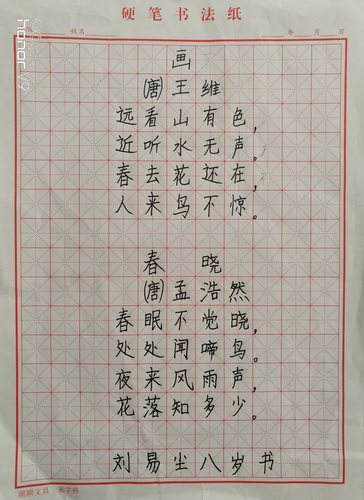 硬笔书法纸
姓名 年 月 日
画
(唐)王维
远看山有色,
近听水无声。
春去花还在,
人来鸟不惊。
春晓
(唐)孟浩然
春眠不觉晓,
处处闻啼鸟。
夜来风雨声,
花落知多少。
刘易尘八岁书
文具 米字格
honor V9